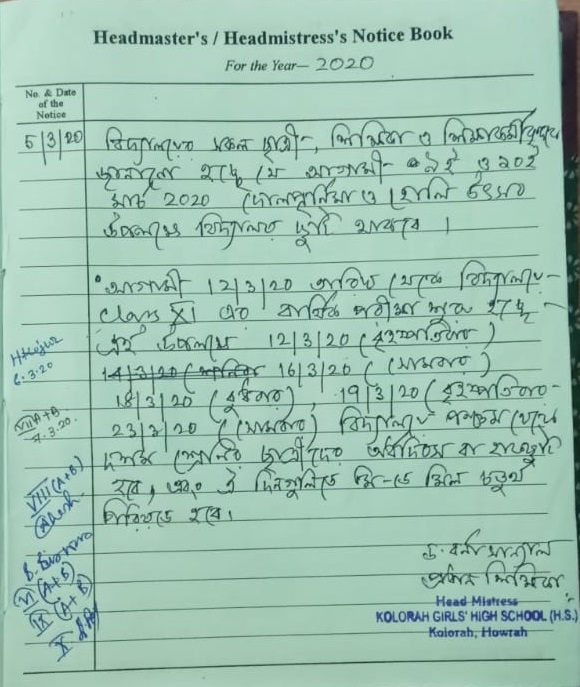 Headmaster's / Headmistress's Notice Book
For the Year— 2020
No. & Date
of the
Notice
5/3/20
বিদ্যালয়ের সকল ছাত্রী, শিক্ষিকা ও শিক্ষাকর্মীবৃন্দকে
জানানো হচ্ছে যে আগামী ৯ই ও ১০ই
মার্চ 2020 দোলপূর্ণিমা ও হোলি উৎসব
উপলক্ষে বিদ্যালয় ছুটি থাকবে ।
আগামী 12/3/20 তারিখ থেকে বিদ্যালয়ে
Class XI এর বার্ষিক পরীক্ষা শুরু হচ্ছে
এই উপলক্ষে 12/3/20 (বৃহস্পতিবার)
14/3/20 (শনিবার 16/3/20 (সোমবার)
18/3/20 (বুধবার), 19/3/20 (বৃহস্পতিবার
23/3/20 (সোমবার) বিদ্যালয়ে পঞ্চম থেকে
দশম শ্রেণির ছাত্রীদের অর্ধদিবস বা হাফছুটি
হবে, এবং ঐ দিনগুলিতে মি-ডে মিল চতুর্থ
পিরিয়ডে হবে।
6.3.20
VII A+B
7.3.20.
VIII (A+B)
VI (A+B)
IX (A+B)
X
প্রধান শিক্ষিকা
Head Mistress
KOLORAH GIRLS' HIGH SCHOOL (H.S.)
Kolorah, Howrah